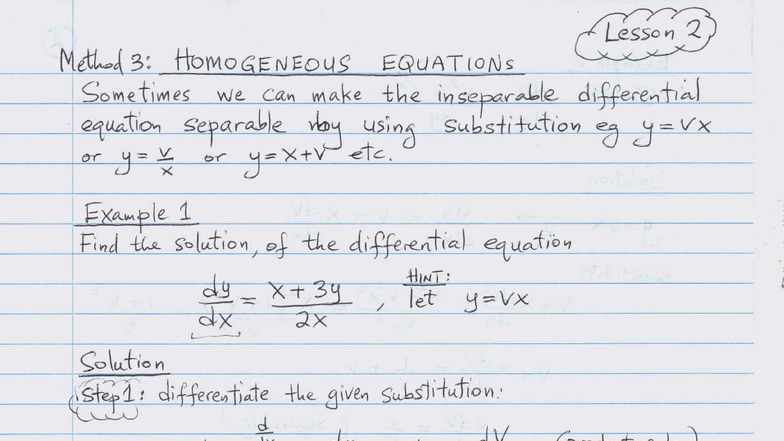 Lesson 2
Method 3: HOMOGENEOUS EQUATIONS
Sometimes we can make the inseparable differential
equation separable by using substitution eg y=vx
or y= v/x or y=x+v etc.
Example 1
Find the solution, of the differential equation
dy/dx = x+3y/2x , HINT: let y=vx
Solution
Step1: differentiate the given substitution: